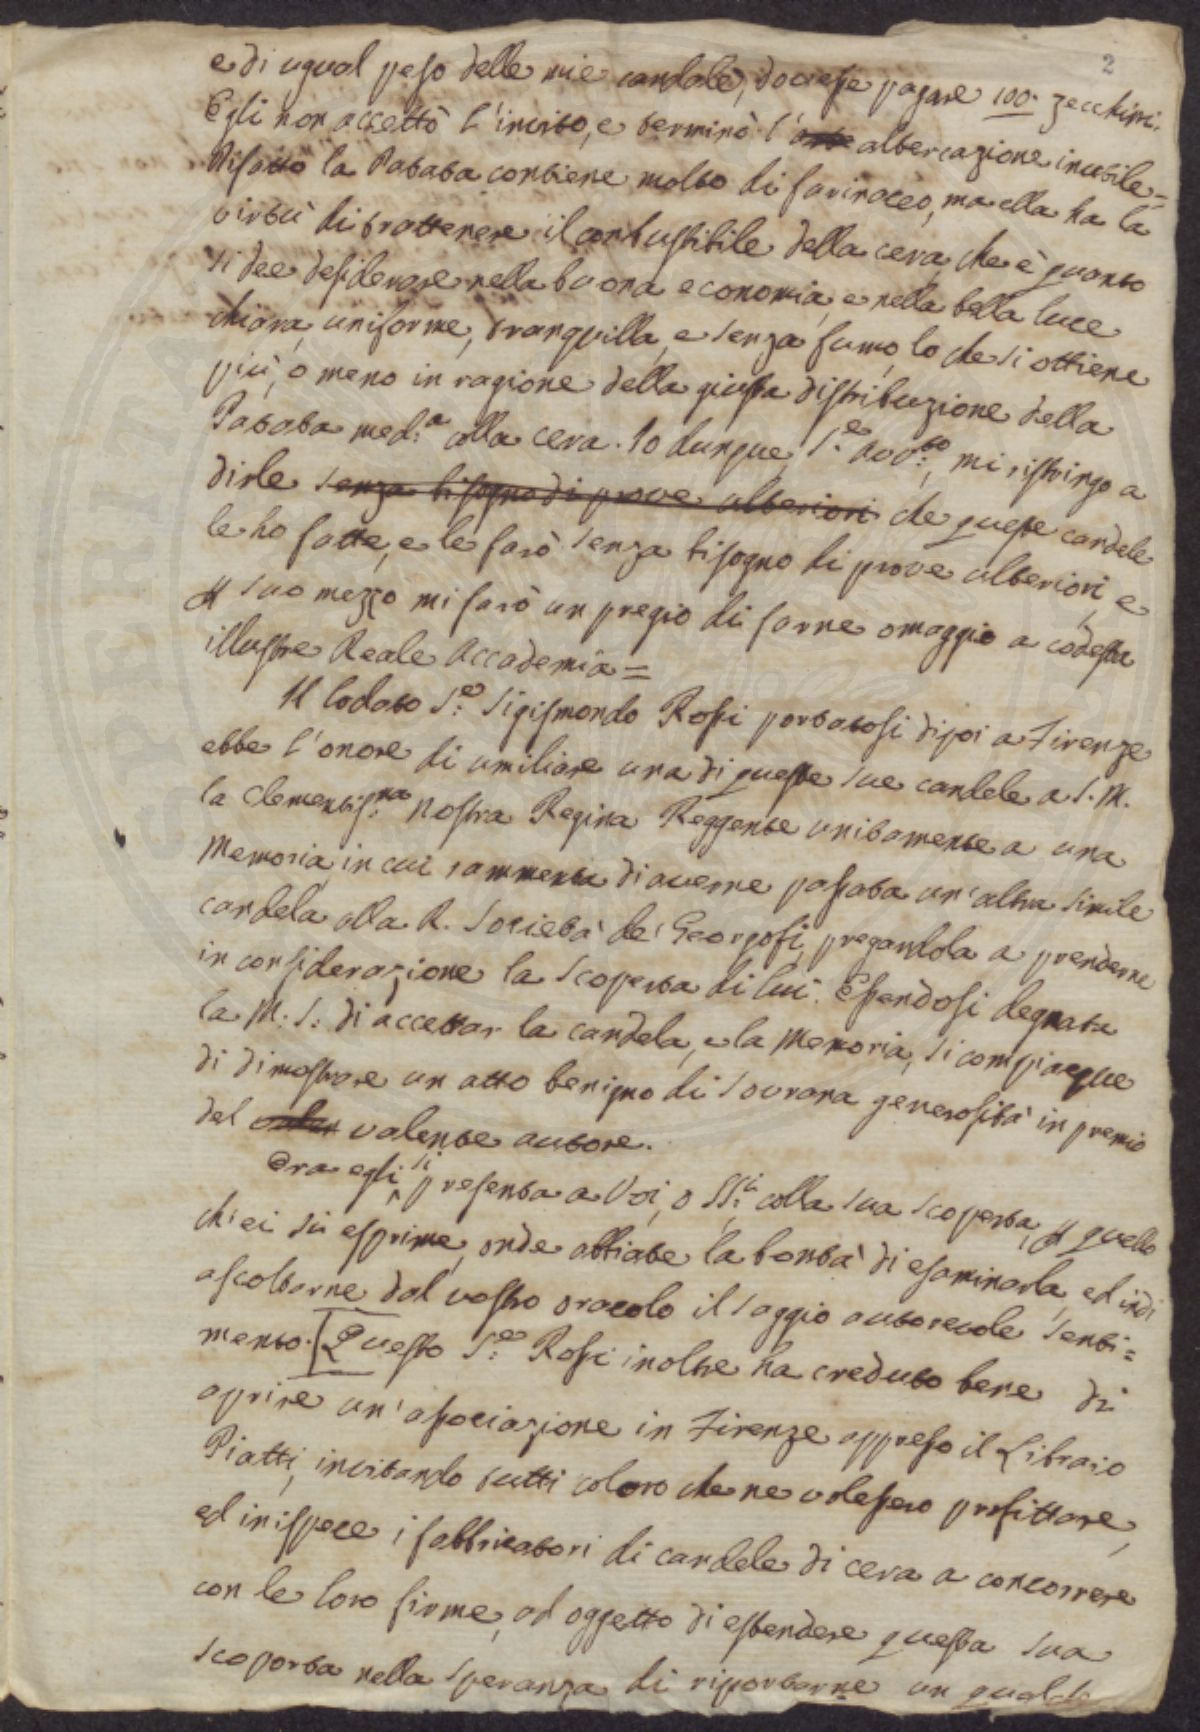 2
e di ugual peso delle mie candele, dovesse pagare 100. zecchini.
Egli non accettò l'invito, e terminò l'altercazione inutile=
Difatto la Patata contiene molto di farinaceo, ma ella ha la
virtù di trattenere il combustibile della cera, che è quanto
si dee desiderare nella buona economia, e nella bella luce
chiara, uniforme, tranquilla, e senza fumo, lo che si ottiene
più, o meno in ragione della giusta distribuzione della
Patata med.ª colla cera. Io dunque, S.e Avv.to, mi ristringo a
dirle senza bisogno di prove ulteriori che queste candele
le ho fatte, e le farò senza bisogno di prove ulteriori, e
suo mezzo mi farò un pregio di farne omaggio a codesta
illustre Reale Accademia=
Il lodato S.e Sigismondo Rossi portatosi dipoi a Firenze
ebbe l'onore di umiliare una di queste sue candele a S. M.
la Clementis.ma Nostra Regina Reggente unitamente a una
Memoria, in cui rammenta di averne passata un'altra simile
candela alla R. Società de' Georgofi, pregandola a prenderne
in considerazione la scoperta di lui. Essendosi degnata
la M. S. di accettar la candela, e la Memoria, si compiacque
di dimostrare un atto benigno di Sovrana generosità in premio
del valente autore.
Ora egli si presenta a Voi, o SS.i colla sua scoperta, quello
ch'ei si esprime, onde abbiate la bontà di esaminarla, ed indi
ascoltarne dal vostro oracolo il saggio autorevole senti=
mento. [Questo S.e Rossi inoltre ha creduto bene di
aprire un'associazione in Firenze appresso il Libraio
Piatti, invitando tutti coloro che ne volessero profittare,
ed inispece i fabbricatori di candele di cera a concorrere
con le loro firme, ad oggetto di estendere questa sua
scoperta nella speranza di riportarne un qualche